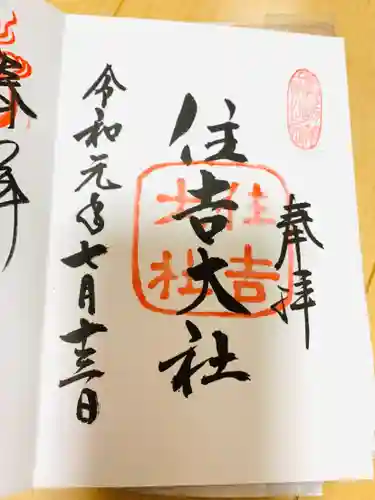 奉拝
住吉大社
住吉大社
令和元年七月十三日
奉拝